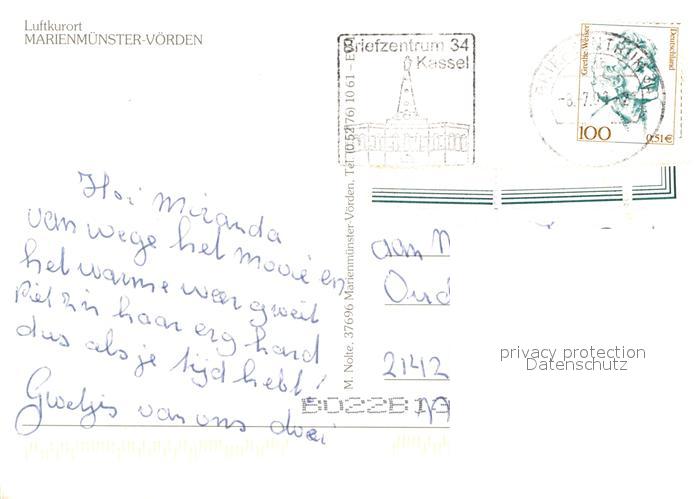 Luftkurort
MARIENMÜNSTER-VÖRDEN
Briefzentrum 34
Kassel
Grethe Weiser
Deutschland
100
0,51€
M. Nolte, 37696 Marienmünster-Vörden, Tel. (0 52 76) 10 61 – E
Hoi Miranda
van wege het mooie en
het warme weer groeit
haar erg hard
dus als je tijd hebt!
Groetjes van ons drei
aan M
Oud
2142
privacy protection
Datenschutz